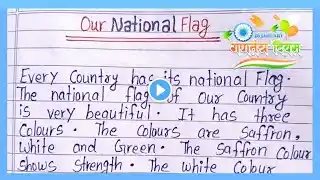 Our National Flag
26 JANUARY
गणतंत्र दिवस
Every Country has its national Flag.
The national flag of Our Country
is very beautiful. It has three
Colours. The Colours are Saffron,
White and Green. The Saffron Colour
Shows Strength. The white Colour